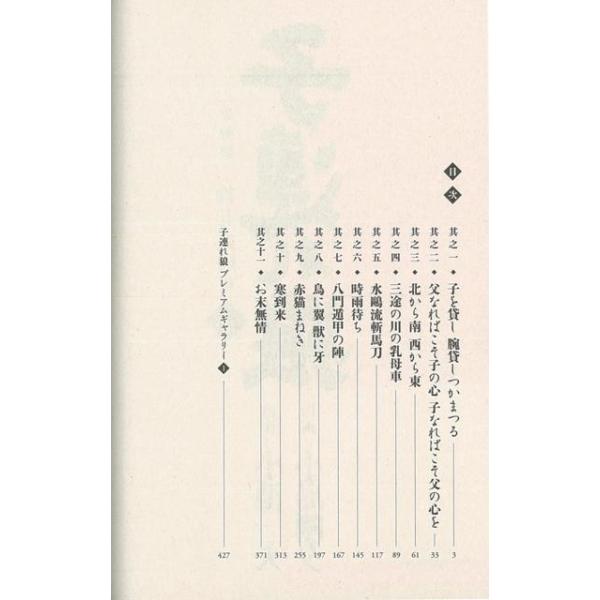 目次
其之一◆子を貸し腕貸しつかまつる 3
其之二◆父なればこそ子の心 子なればこそ父の心を 33
其之三◆北から南 西から東 61
其之四◆三途の川の乳母車 89
其之五◆水鷗流斬馬刀 117
其之六◆時雨待ち 145
其之七◆八門遁甲の陣 167
其之八◆鳥に翼 獣に牙 197
其之九◆赤猫まねき 255
其之十◆寒到来 313
其之十一◆お末無情 371
子連れ狼 プレミアムギャラリー 1 427